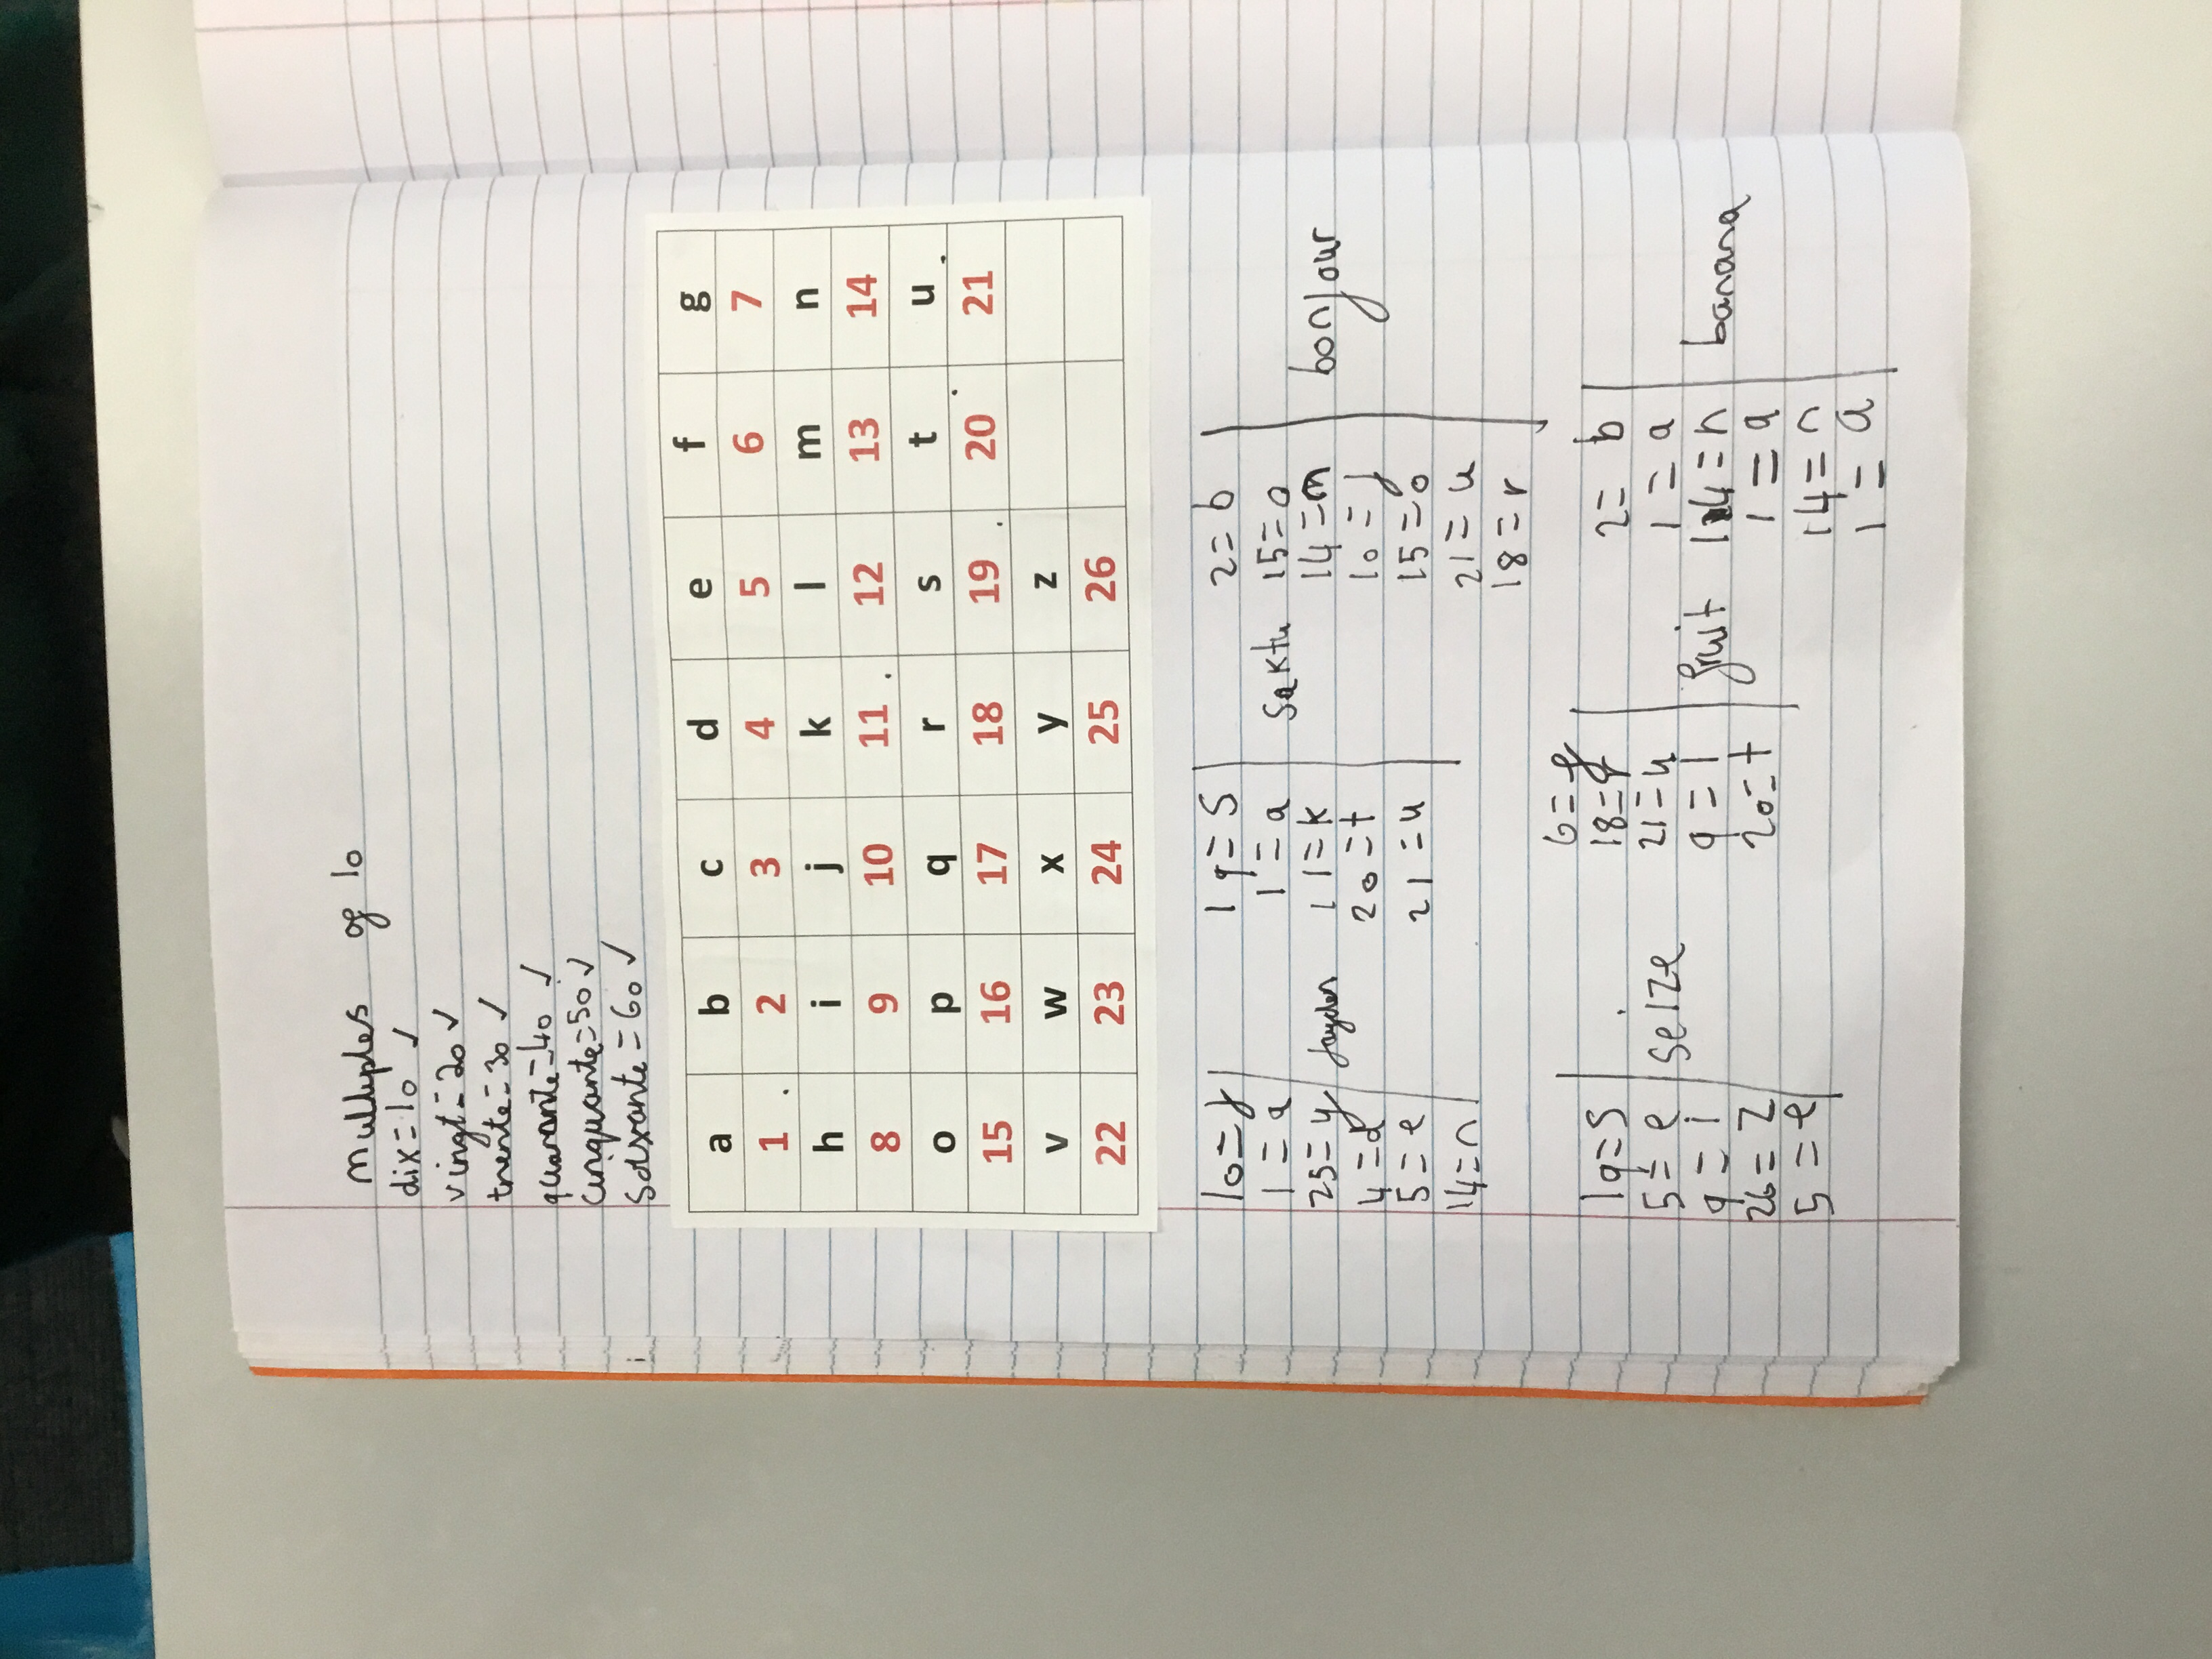 multiples of 10
dix=10 ✓
vingt=20 ✓
trente=30 ✓
quarante=40 ✓
cinquante=50 ✓
Soixante=60 ✓
a b c d e f g
1 2 3 4 5 6 7
h i j k l m n
8 9 10 11 12 13 14
o p q r s t u
15 16 17 18 19 20 21
v w x y z
22 23 24 25 26
10=j
1=a
25=y
4=d
5=e
14=n
Jayden
19=S
1=a
11=k
20=t
21=u
Saktu
2=b
15=o
14=n
10=j
15=o
21=u
18=r
bonjour
19=S
5=e
9=i
26=Z
5=e
SeIZe
6=f
18=r
21=u
9=i
20=t
fruit
2=b
1=a
14=n
1=a
14=n
1=a
banana